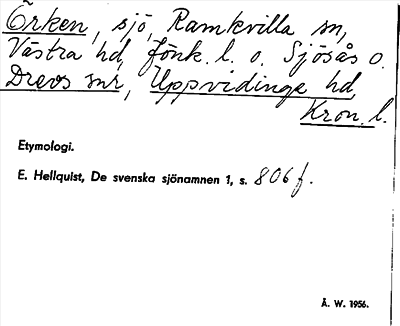 Örken, sjö, Ramkvilla sn,
Västra hd, Jönk. l. o. Sjösås o.
Drevs snr, Uppvidinge hd,
Kron. l.
Etymologi.
E. Hellquist, De svenska sjönamnen 1, s. 806 f.
Å. W. 1956.